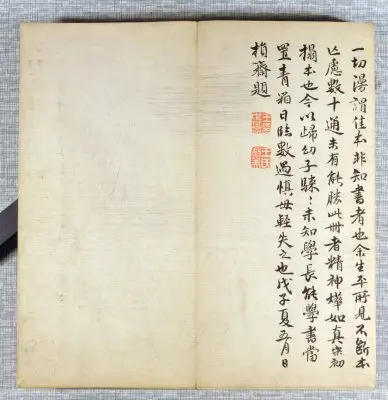 一切漫謂佳本非知書者也余生平所見不斷本
亡慮數十通未有能勝此冊者精神燁如真宋初
搨本也今以歸幼子未知學長能學書當
置青箱日臨數過慎毋輕失之也戊子夏五月日
齋題